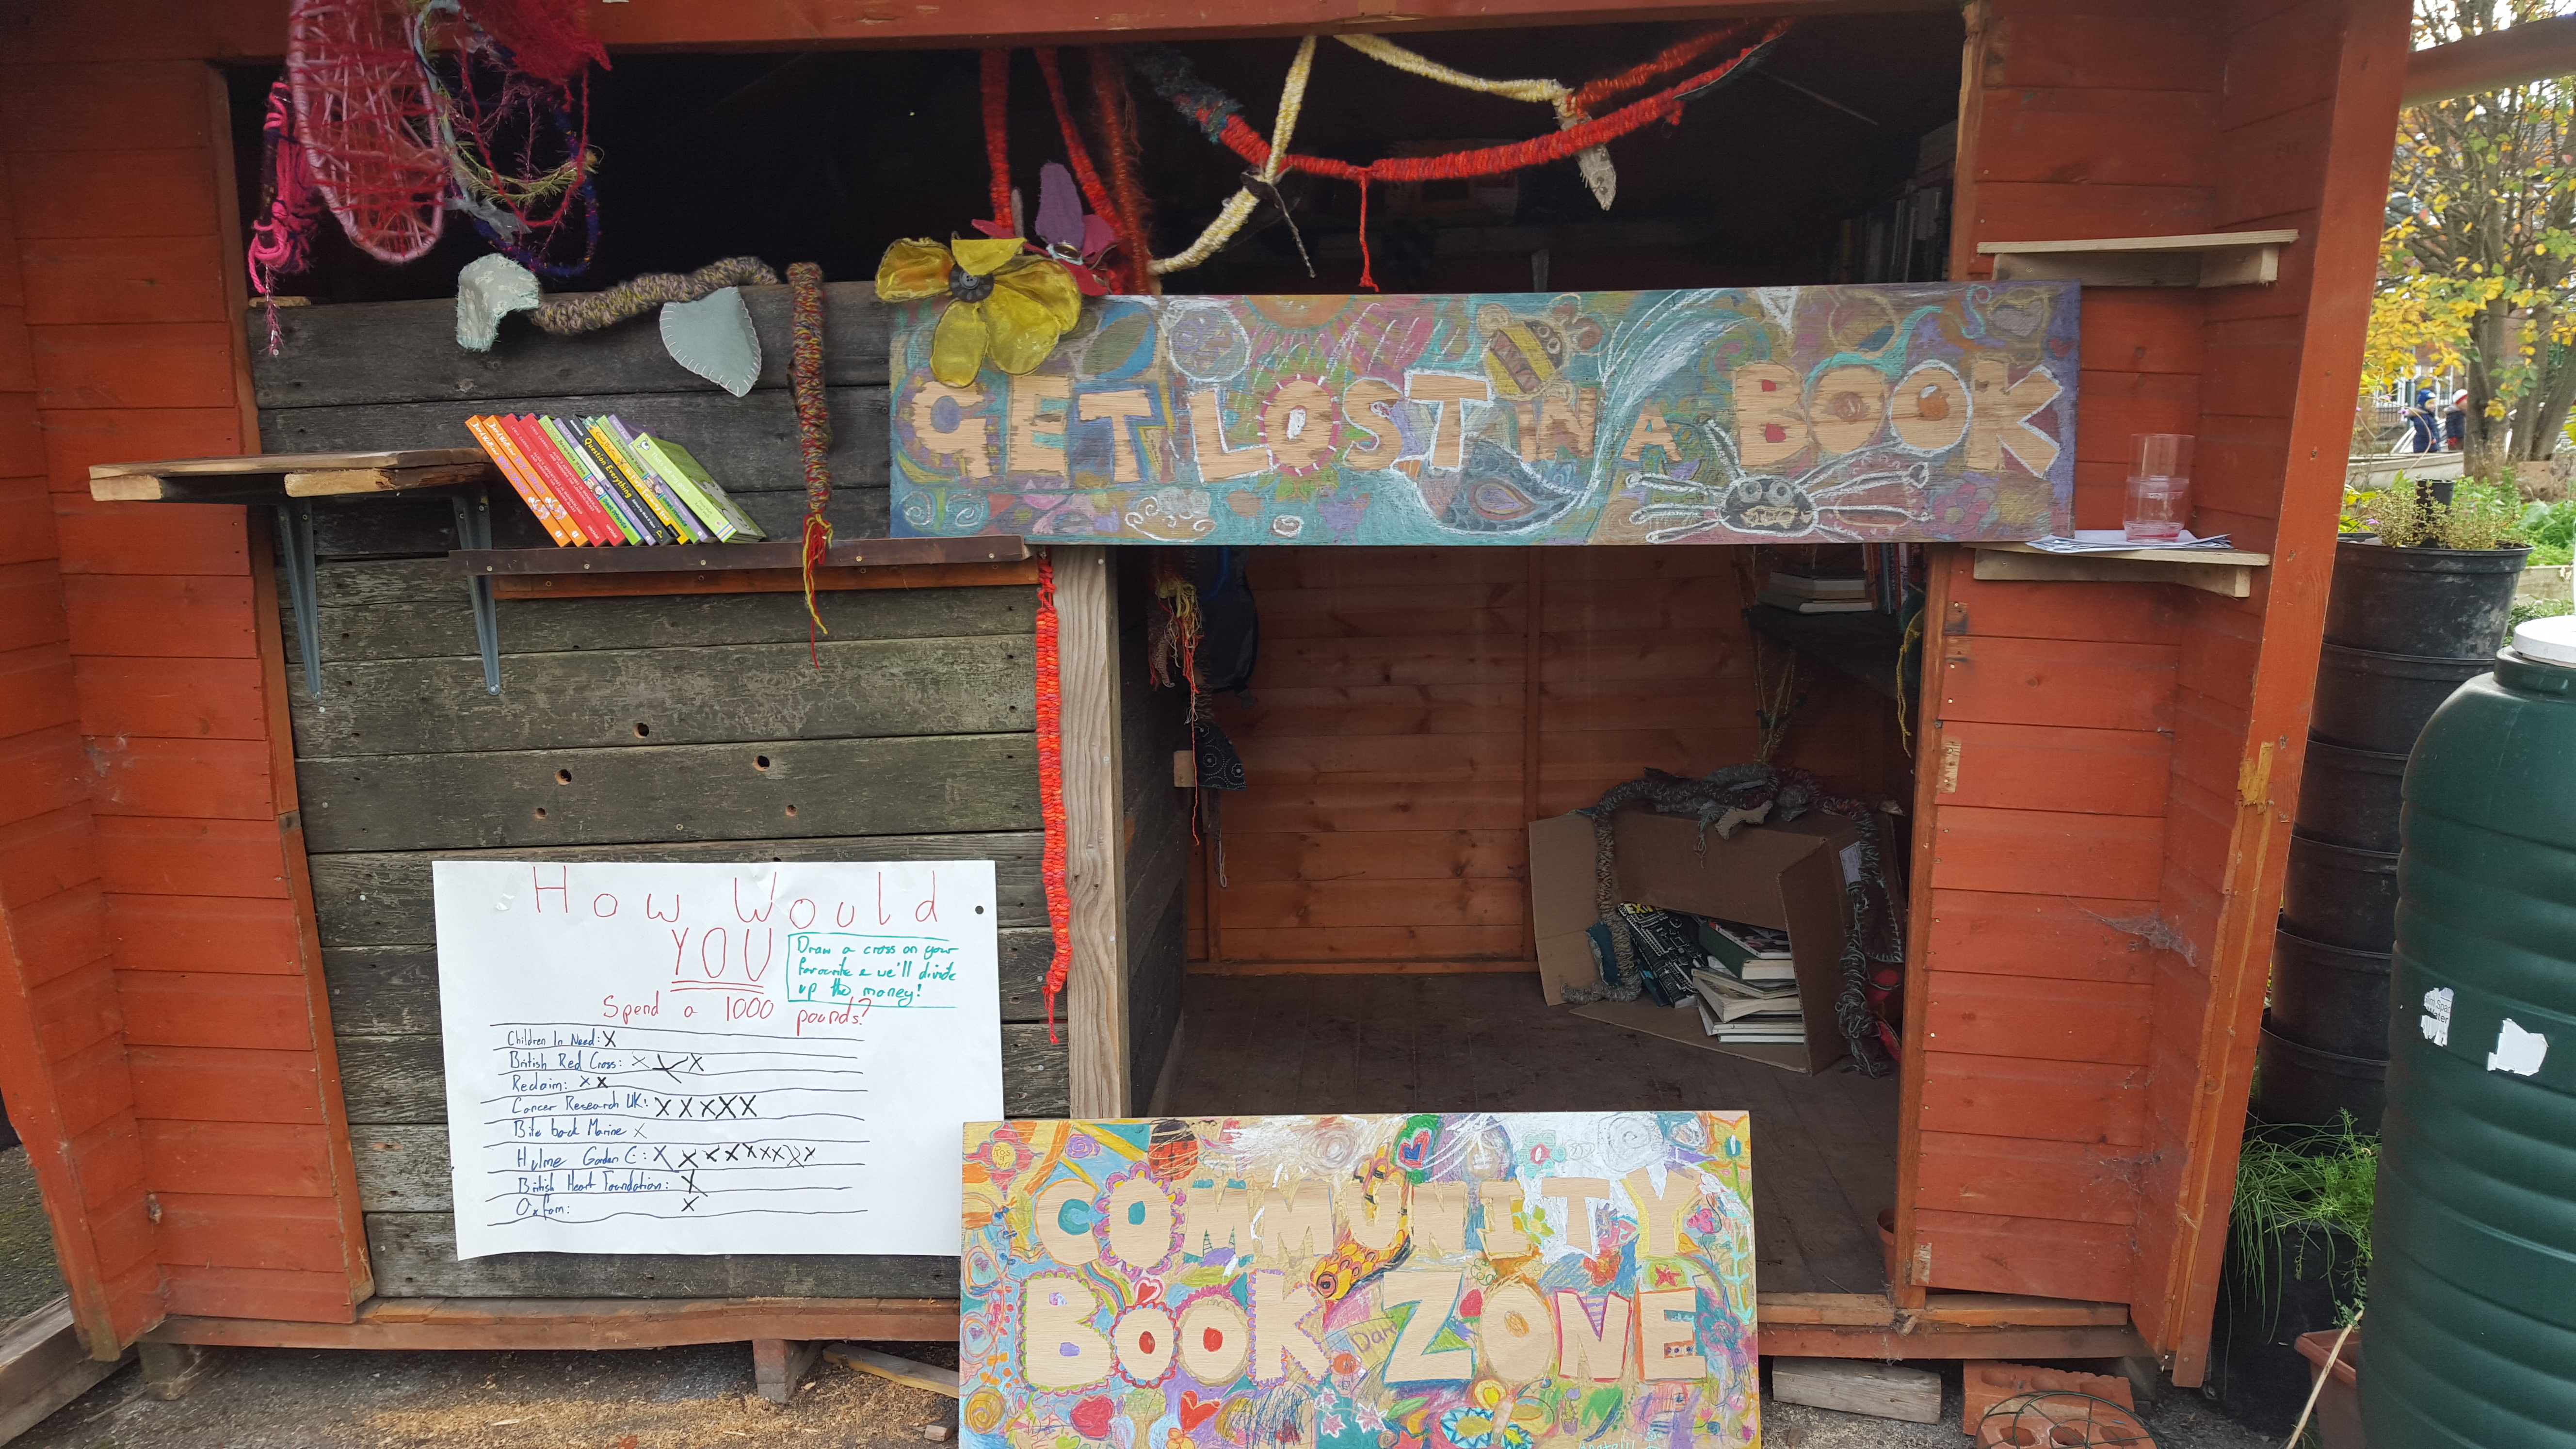 GET LOST IN A BOOK
Question Everything
How Would
YOU
Spend a 1000 pounds?
Draw a cross on your
favourite & we'll divide
up the money!
Children In Need: X
British Red Cross: X X X
Reclaim: X X
Cancer Research UK: X X X X X
Bite back Marine X
Hulme Garden C:
British Heart Foundation: X
Oxfam: X
COMMUNITY
BOOK ZONE